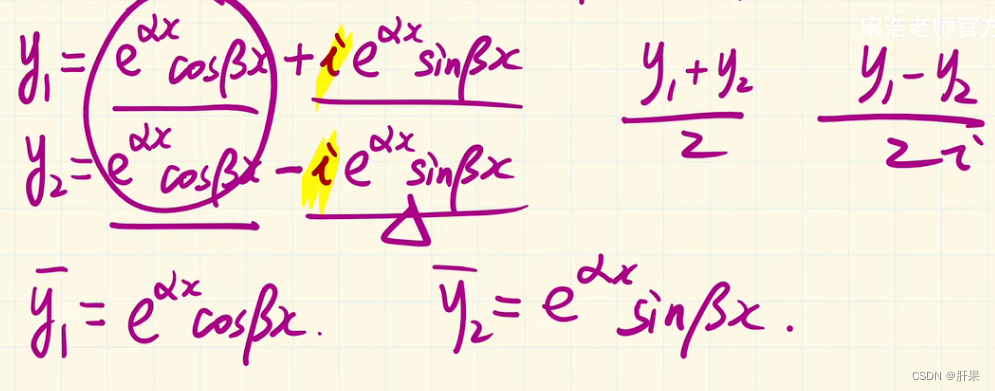 宋浩老师官方
y₁ = e^{αx} cosβx + i e^{αx} sinβx
y₂ = e^{αx} cosβx - i e^{αx} sinβx
\frac{y₁ + y₂}{2} \frac{y₁ - y₂}{2i}
\overline{y₁} = e^{αx} cosβx. \overline{y₂} = e^{αx} sinβx.
CSDN @肝果